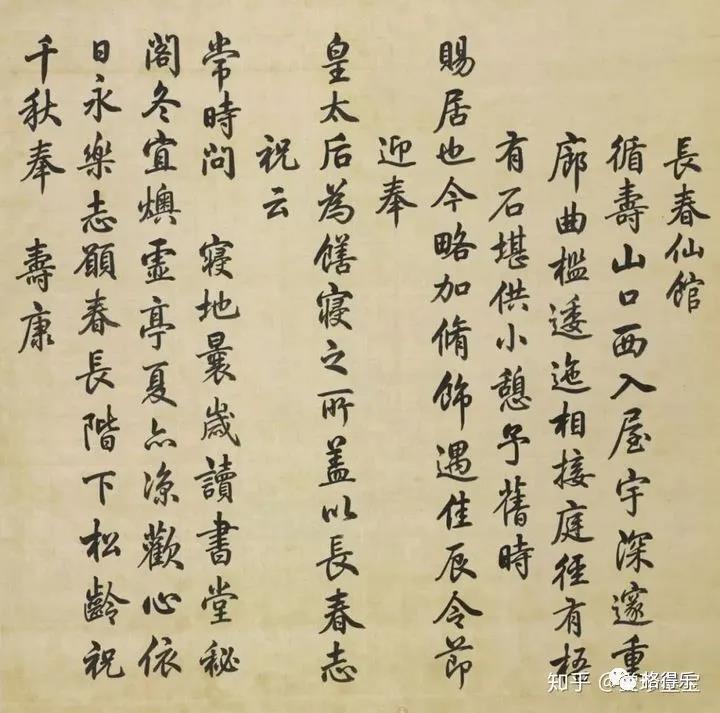 長春仙館
循壽山口西入屋宇深邃重
廊曲檻逶迤相接庭徑有梧
有石堪供小憩予舊時
賜居也今略加脩飾遇佳辰令節
迎奉
皇太后為饍寢之所蓋以長春志
祝云
常時問 寢地曩歲讀書堂秘
閣冬宜燠虛亭夏亦涼歡心依
日永樂志願春長階下松齡祝
千秋奉 壽康
知乎 @
格得乐